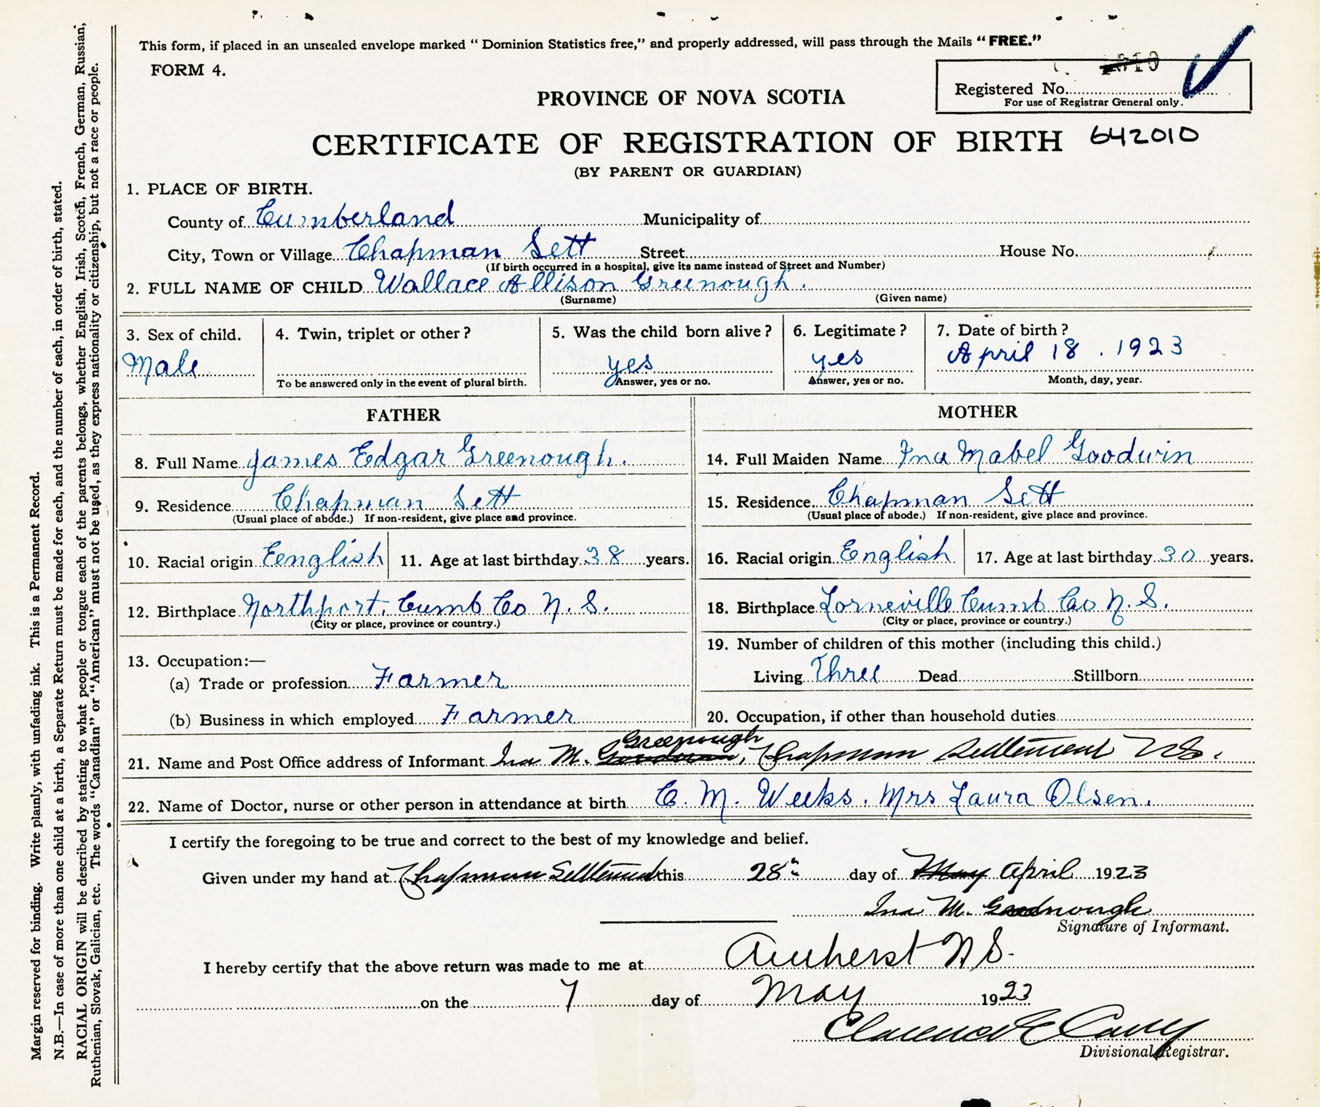 This form, if placed in an unsealed envelope marked "Dominion Statistics free," and properly addressed, will pass through the Mails "FREE."
FORM 4.
Registered No.
For use of Registrar General only.
PROVINCE OF NOVA SCOTIA
CERTIFICATE OF REGISTRATION OF BIRTH 642010
(BY PARENT OR GUARDIAN)
1. PLACE OF BIRTH.
County of Cumberland Municipality of
City, Town or Village Chapman Sett Street House No.
(If birth occurred in a hospital, give its name instead of Street and Number)
2. FULL NAME OF CHILD Wallace Allison Greenough.
(Surname) (Given name)
3. Sex of child. 4. Twin, triplet or other? 5. Was the child born alive? 6. Legitimate? 7. Date of birth?
Male yes yes April 18. 1923
To be answered only in the event of plural birth. Answer, yes or no. Answer, yes or no. Month, day, year.
FATHER MOTHER
8. Full Name James Edgar Greenough. 14. Full Maiden Name Ina Mabel Goodwin
9. Residence Chapman Sett 15. Residence Chapman Sett
(Usual place of abode.) If non-resident, give place and province. (Usual place of abode.) If non-resident, give place and province.
10. Racial origin Eenglish 11. Age at last birthday 38 years. 16. Racial origin English 17. Age at last birthday 30 years.
12. Birthplace Northport. Cumb Co N. S. 18. Birthplace Lorneville Cumb Co N. S.
(City or place, province or country.) (City or place, province or country.)
13. Occupation:— 19. Number of children of this mother (including this child.)
(a) Trade or profession Farmer Living Three Dead Stillborn
(b) Business in which employed Farmer 20. Occupation, if other than household duties
21. Name and Post Office address of Informant Ina M. Greenough, Chapman Settlement N.S.
22. Name of Doctor, nurse or other person in attendance at birth C. M. Weeks. Mrs Laura Olsen.
I certify the foregoing to be true and correct to the best of my knowledge and belief.
Given under my hand at Chapman Settlement this 28th day of May April 1923
Ina M. Goodnough
Signature of Informant.
I hereby certify that the above return was made to me at Amherst N S.
on the 7 day of May 1923
Clarence E
Divisional Registrar.
Margin reserved for binding. Write plainly, with unfading ink. This is a Permanent Record.
N.B.—In case of more than one child at a birth, a Separate Return must be made for each, and the number of each, in order of birth, stated.
RACIAL ORIGIN will be described by stating to what people or tongue each of the parents belongs, whether English, Irish, Scotch, French, German, Russian,
Ruthenian, Slovak, Galician, etc. The words "Canadian" or "American" must not be used, as they express nationality or citizenship, but not a race or people.